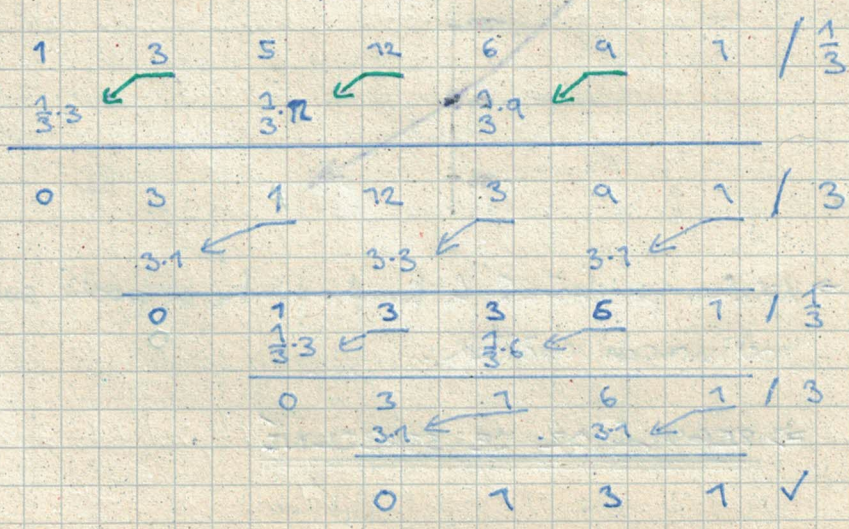 1 3 5 12 6 9 1 / 1/3
1/3·3 1/3·12 1/3·9
0 3 1 12 3 9 1 / 3
3·1 3·3 3·1
0 1 3 3 6 1 / 1/3
1/3·3 1/3·6
0 3 1 6 1 / 3
3·1 3·1
0 1 3 1 ✓